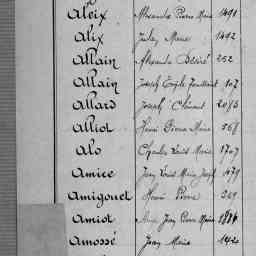 Aloix Alexandre Pierre Marie 1491
Alix Jules Marie 1492
Allain Alexandre Désiré 252
Allain Joseph Emile 107
Allard Joseph Clément 2083
Alliot Henri Pierre Marie 568
Alo Charles Louis Marie 1707
Amice Jean Louis Marie Joseph 479
Amigouet Henri Pierre 269
Amiot Jean Pierre Marie
Amossé Jean Marie 1420